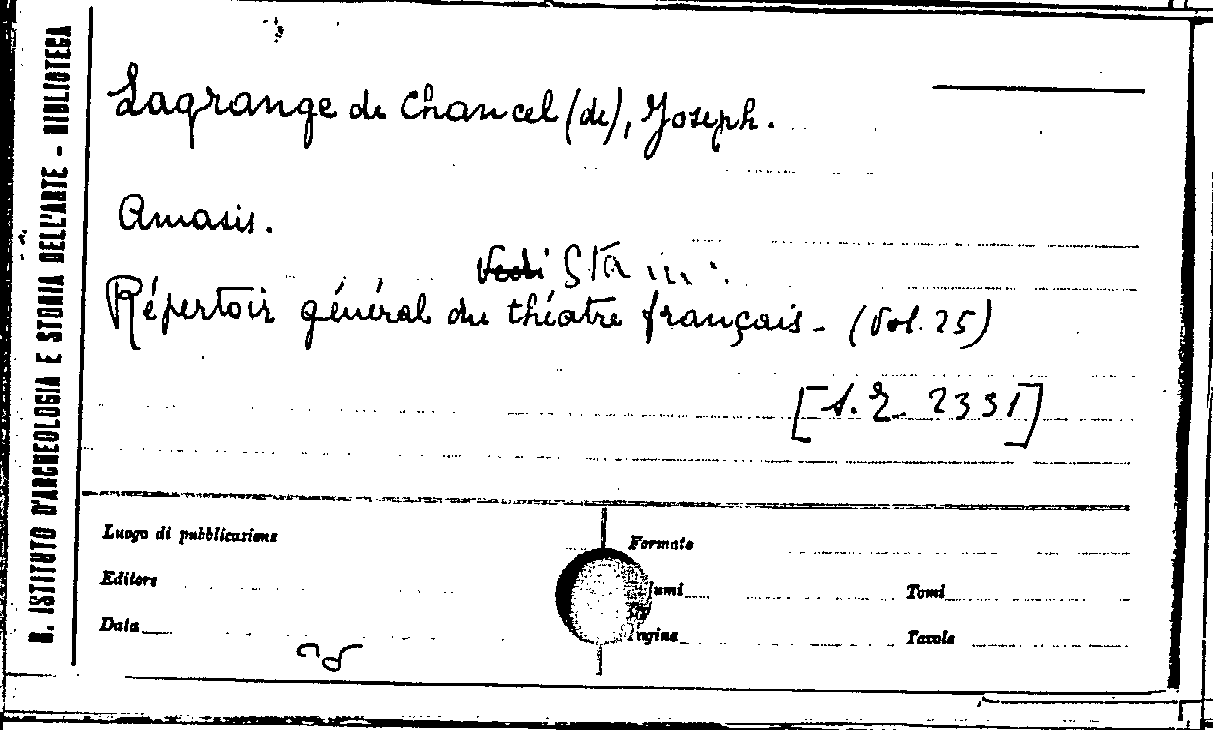 R. ISTITUTO D'ARCHEOLOGIA E STORIA DELL'ARTE - BIBLIOTECA
Lagrange de Chancel (de), Joseph.
Amasis.
Vedi
Répertoir général du théatre français - (Vol. 25)
2331]
Luogo di pubblicazione
Formato
Editore
Tomi
Data
Tavole